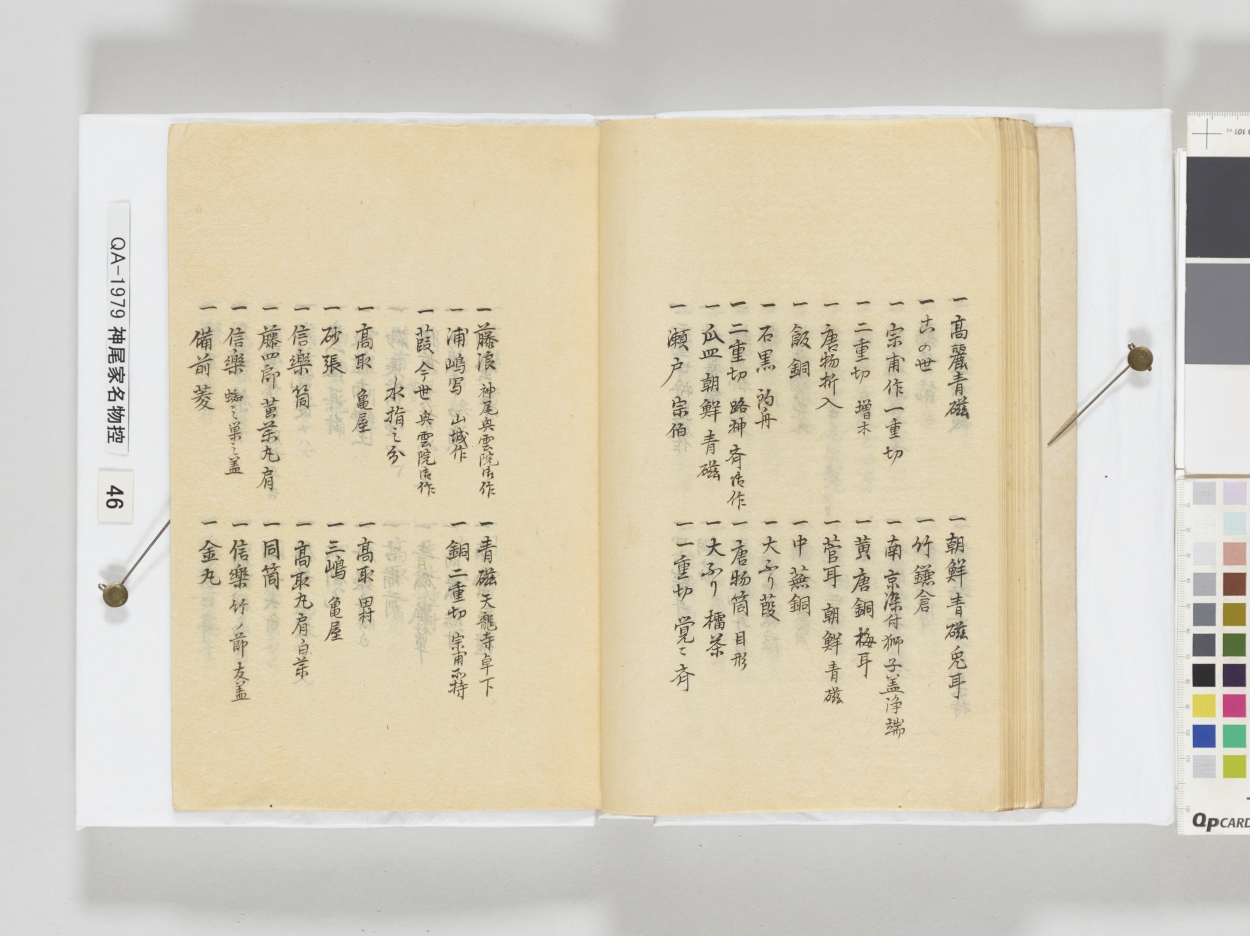 一 高麗青磁
一 古の世
一 宗甫作一重切
一 二重切 増木
一 唐物折入
一 飯銅
一 石黒 釣舟
一 二重切 路神斉御作
一 瓜皿 朝鮮青磁
一 瀬戸 宗伯
一 朝鮮青磁兎耳
一 竹鎌倉
一 南京染付獅子蓋浄端
一 黄唐銅 梅耳
一 菅耳 朝鮮青磁
一 中蕪銅
一 大ふり葭
一 唐物筒 目形
一 大ふり 擂茶
一 一重切 覚々斉
一 藤浪 神尾興雲院御作
一 浦嶋写 山城作
一 葭 今世 興雲院御作
水指之分
一 高取 亀屋
一 砂張
一 信楽 筒
一 藤四郎 黄薬丸肩
一 信楽 蜘之巣之蓋
一 備前菱
一 青磁 天龍寺卓下
一 銅二重切 宗甫所持
一 高取 田村
一 三嶋 亀屋
一 高取丸肩白薬
一 同筒
一 信楽 竹ノ節 友蓋
一 金丸
QA-1979 神尾家名物控
46
QPCARD 101